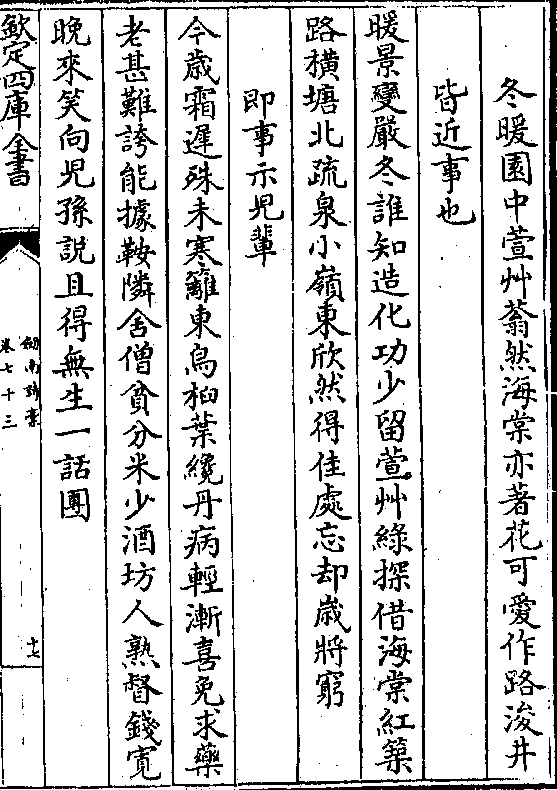 冬暖園中萱艸蓊然海棠亦著花可愛作路浚井
皆近事也
暖景變嚴冬誰知造化功少留萱艸綠探借海棠紅築
路橫塘北疏泉小嶺東欣然得佳處忘却歳將窮
即事示兒輩
今歳霜遲殊未寒籬東烏桕葉纔丹病輕漸喜免求藥
老甚難誇能據鞍隣舍僧貧分米少酒坊人熟督錢寛
晚來笑向兒孫説且得無生一話團
欽定四庫全書
劒南詩稾
卷七十三
十七